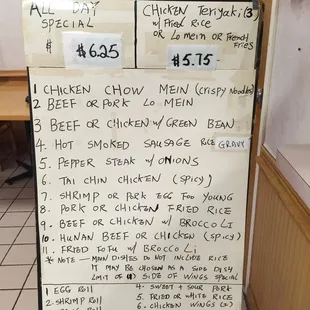 ALL DAY
SPECIAL
$6.25
CHICKEN TERiyaki (3)
w/ FRied Rice
OR Lo mein OR French
FRies
$5.75
1 CHICKEN CHOW MEIN (CRispy Noodles)
2 BEEF OR PORK LO MEIN
3 BEEF OR CHICKEN W/ GREEN BEAN
4 HOT SMOKED SAUSAGE RICE GRAVY
5 PEPPER STEAK W/ ONIONS
6 TAI CHIN CHICKEN (SPICY)
7 SHRIMP OR PORK EGG FOO YOUNG
8 PORK OR CHICKEN FRIED RICE
9 BEEF OR CHICKEN W/ BROCCO LI
10 HUNAN BEEF OR CHICKEN (SPICY)
11 FRIED TOFU W/ BROCCO Li
* NOTE — MAIN DISHES DO NOT INCLUDE RICE
IT MAY BE CHOSEN AS A SIDE DISH
LIMIT OF SIDE OF WINGS SPECIAL
1 EGG ROLL
2 SHRIMP ROLL
4 SWEET + SOUR PORK
5 FRIED OR WHITE RICE
6 CHICKEN WINGS